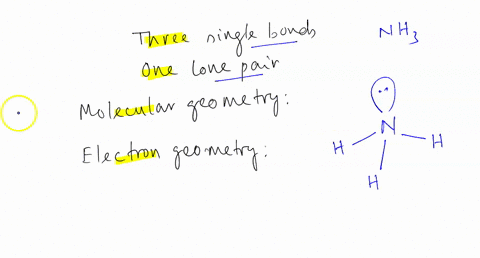 Three single bonds
NH3
One lone pair
Molecular geometry:
Electron geometry:
N
H
H
H